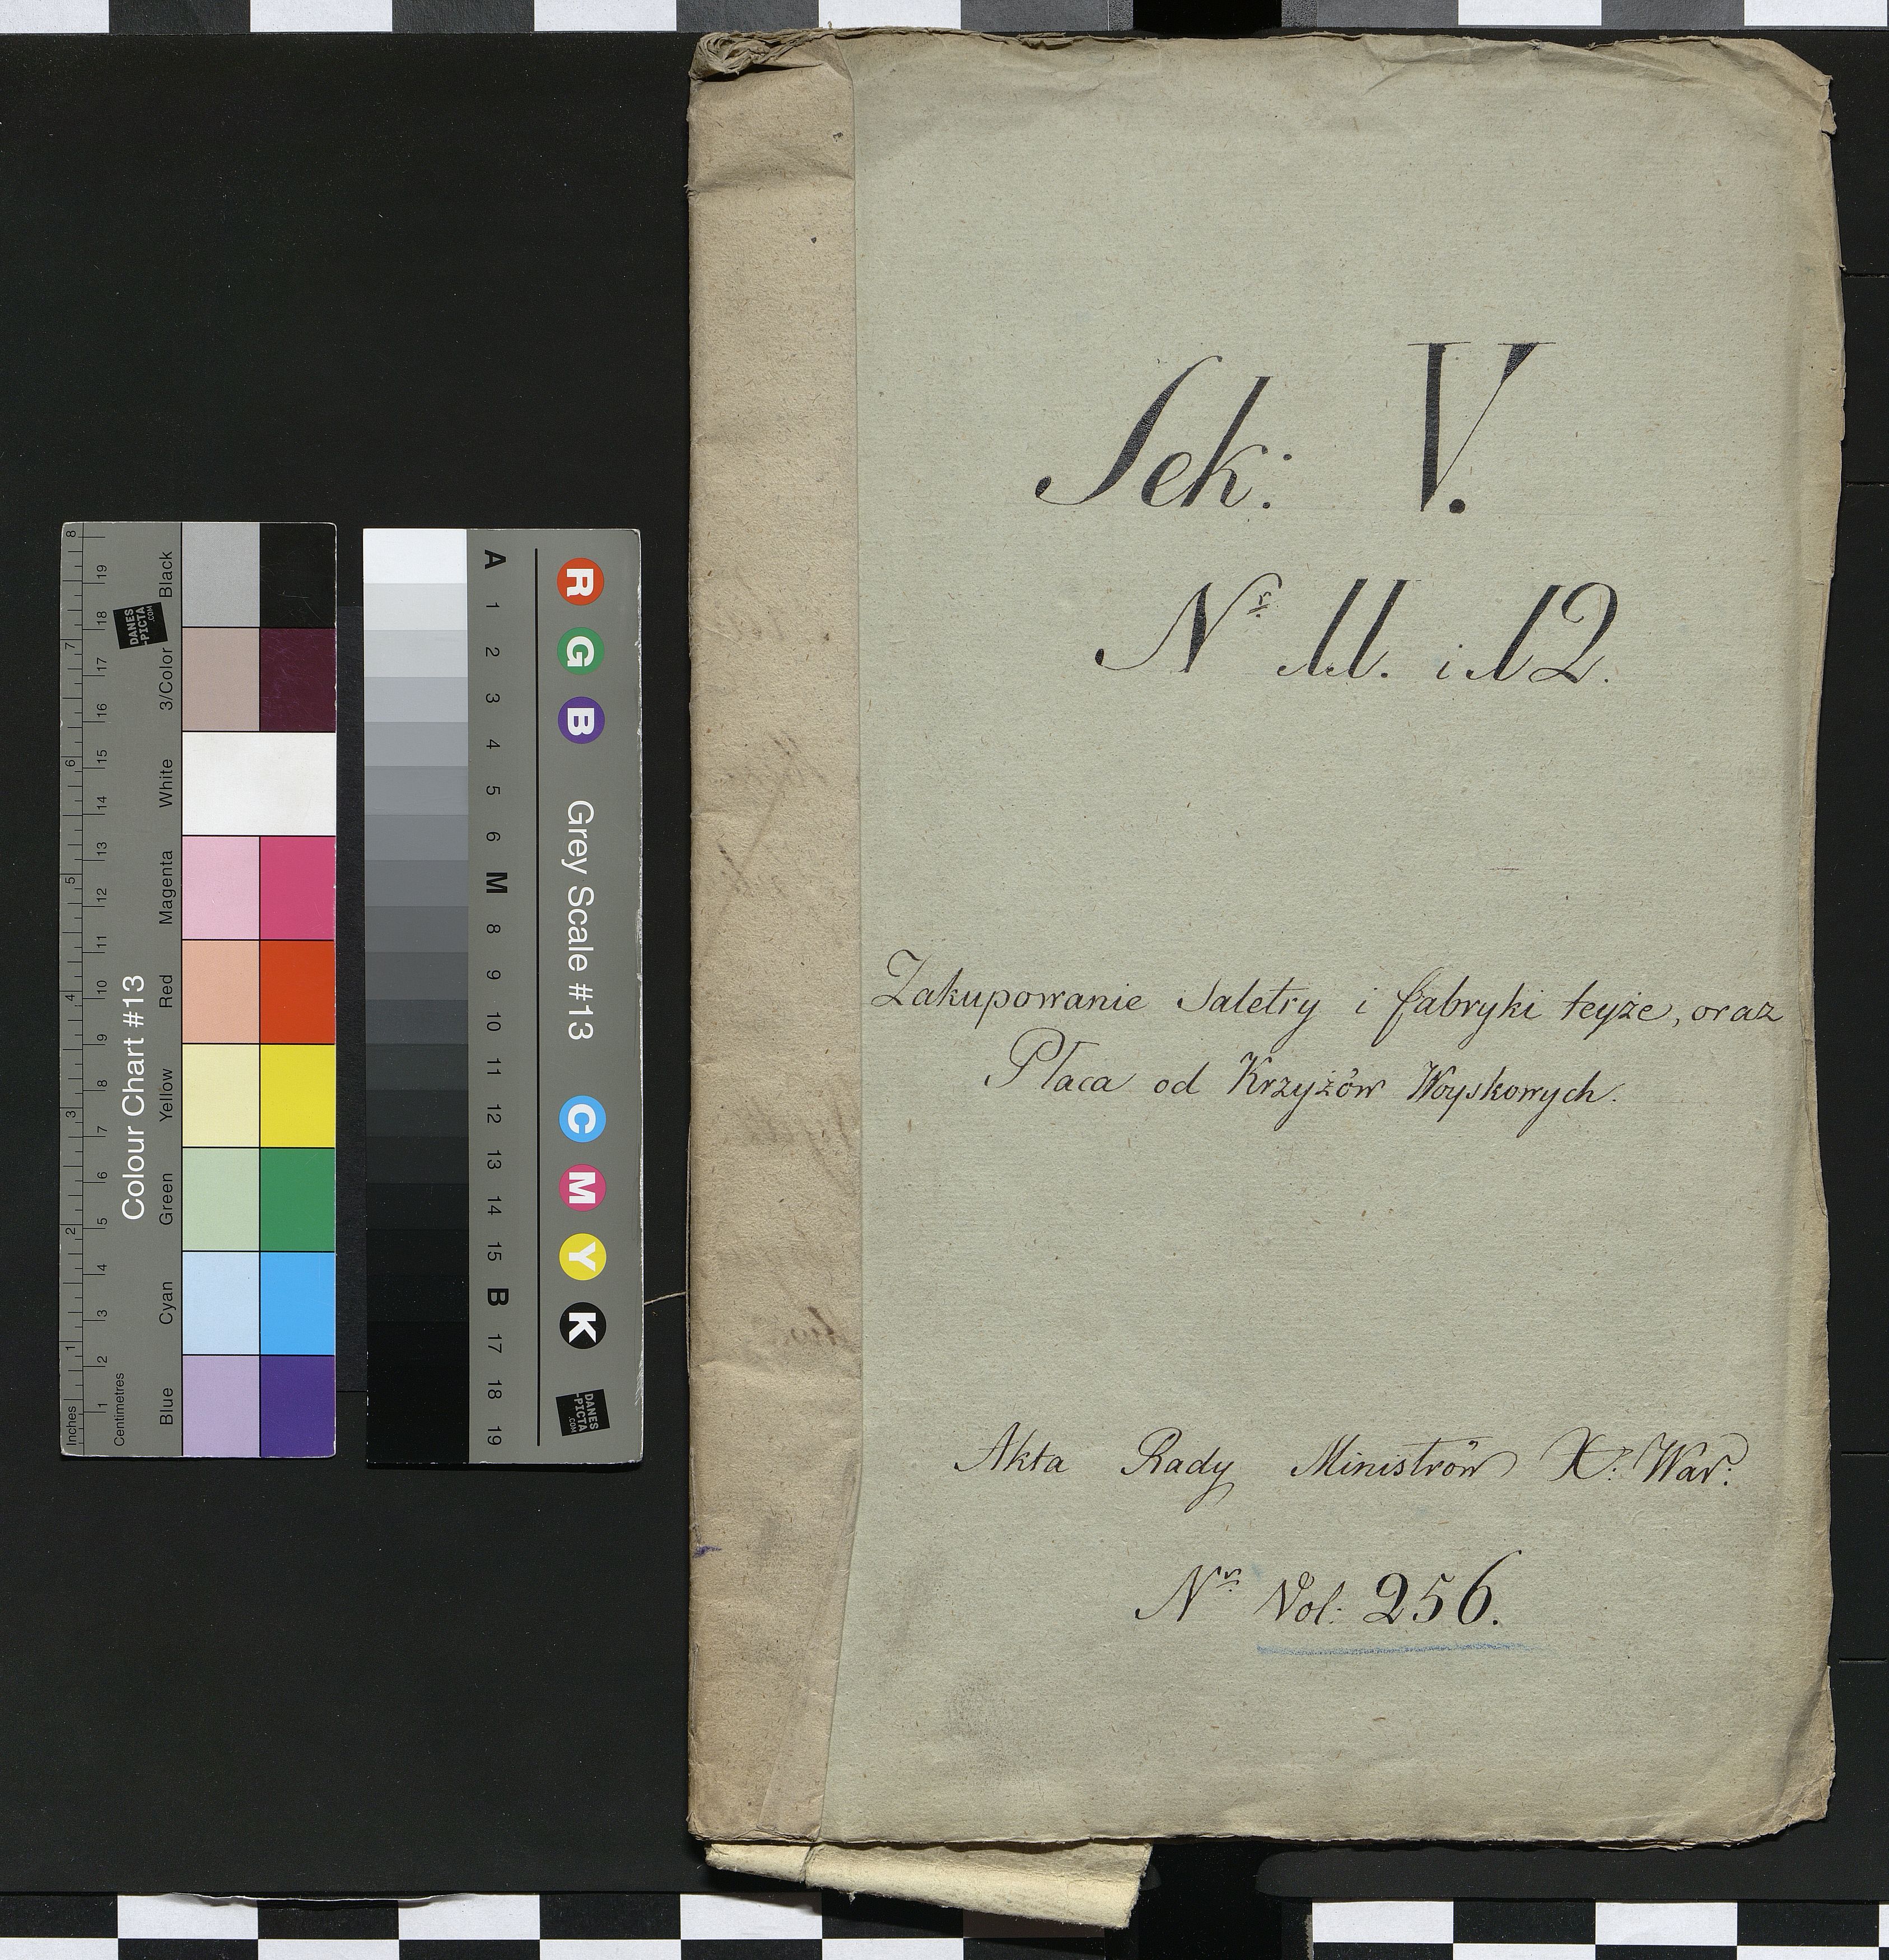 Sek: V.
Nr 11. i 12.
Zakupowanie Saletry i fabryki teyże, oraz
Płaca od Krzyżów Woyskowych.
Akta Rady Ministrów X: War:
Nr Vol: 256.
Colour Chart #13
Black
3/Color
White
Magenta
Red
Yellow
Green
Cyan
Blue
Inches
1 2 3 4 5 6 7 8
Centimetres
1 2 3 4 5 6 7 8 9 10 11 12 13 14 15 16 17 18 19
DANES
-PICTA
.COM
Grey Scale #13
R G B
C M Y K
A 1 2 3 4 5 6 M 8 9 10 11 12 13 14 15 B 17 18 19
DANES
-PICTA
.COM